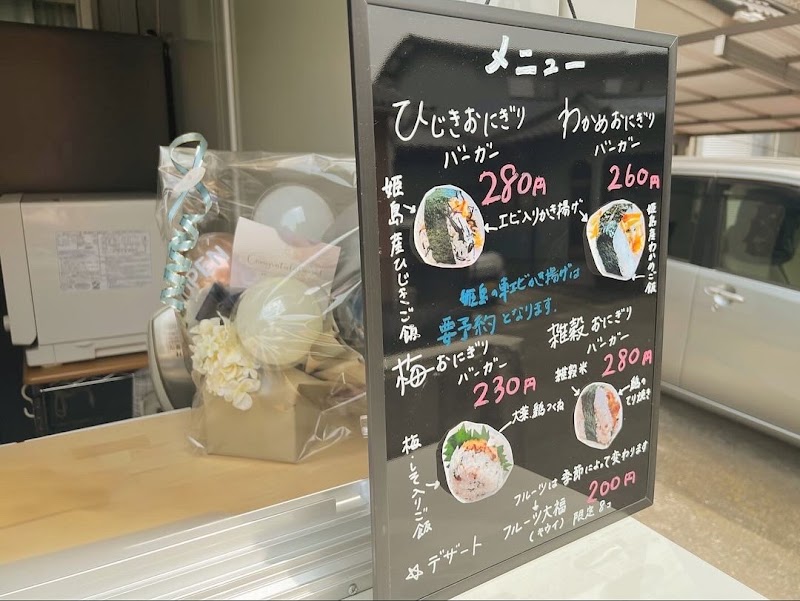 メニュー
ひじきおにぎり
バーガー
280円
姫島産ひじきご飯
エビ入りかき揚げ
わかめおにぎり
バーガー
260円
姫島産わかめご飯
姫島の車エビかき揚げは
要予約となります.
梅おにぎり
バーガー
230円
大葉.鶏つくね
梅・しそ入りご飯
雑穀おにぎり
バーガー
280円
雑穀米
鶏の
てり焼き
デザート
フルーツは季節によって変わります
フルーツ大福
(キウイ)
200円
限定8コ